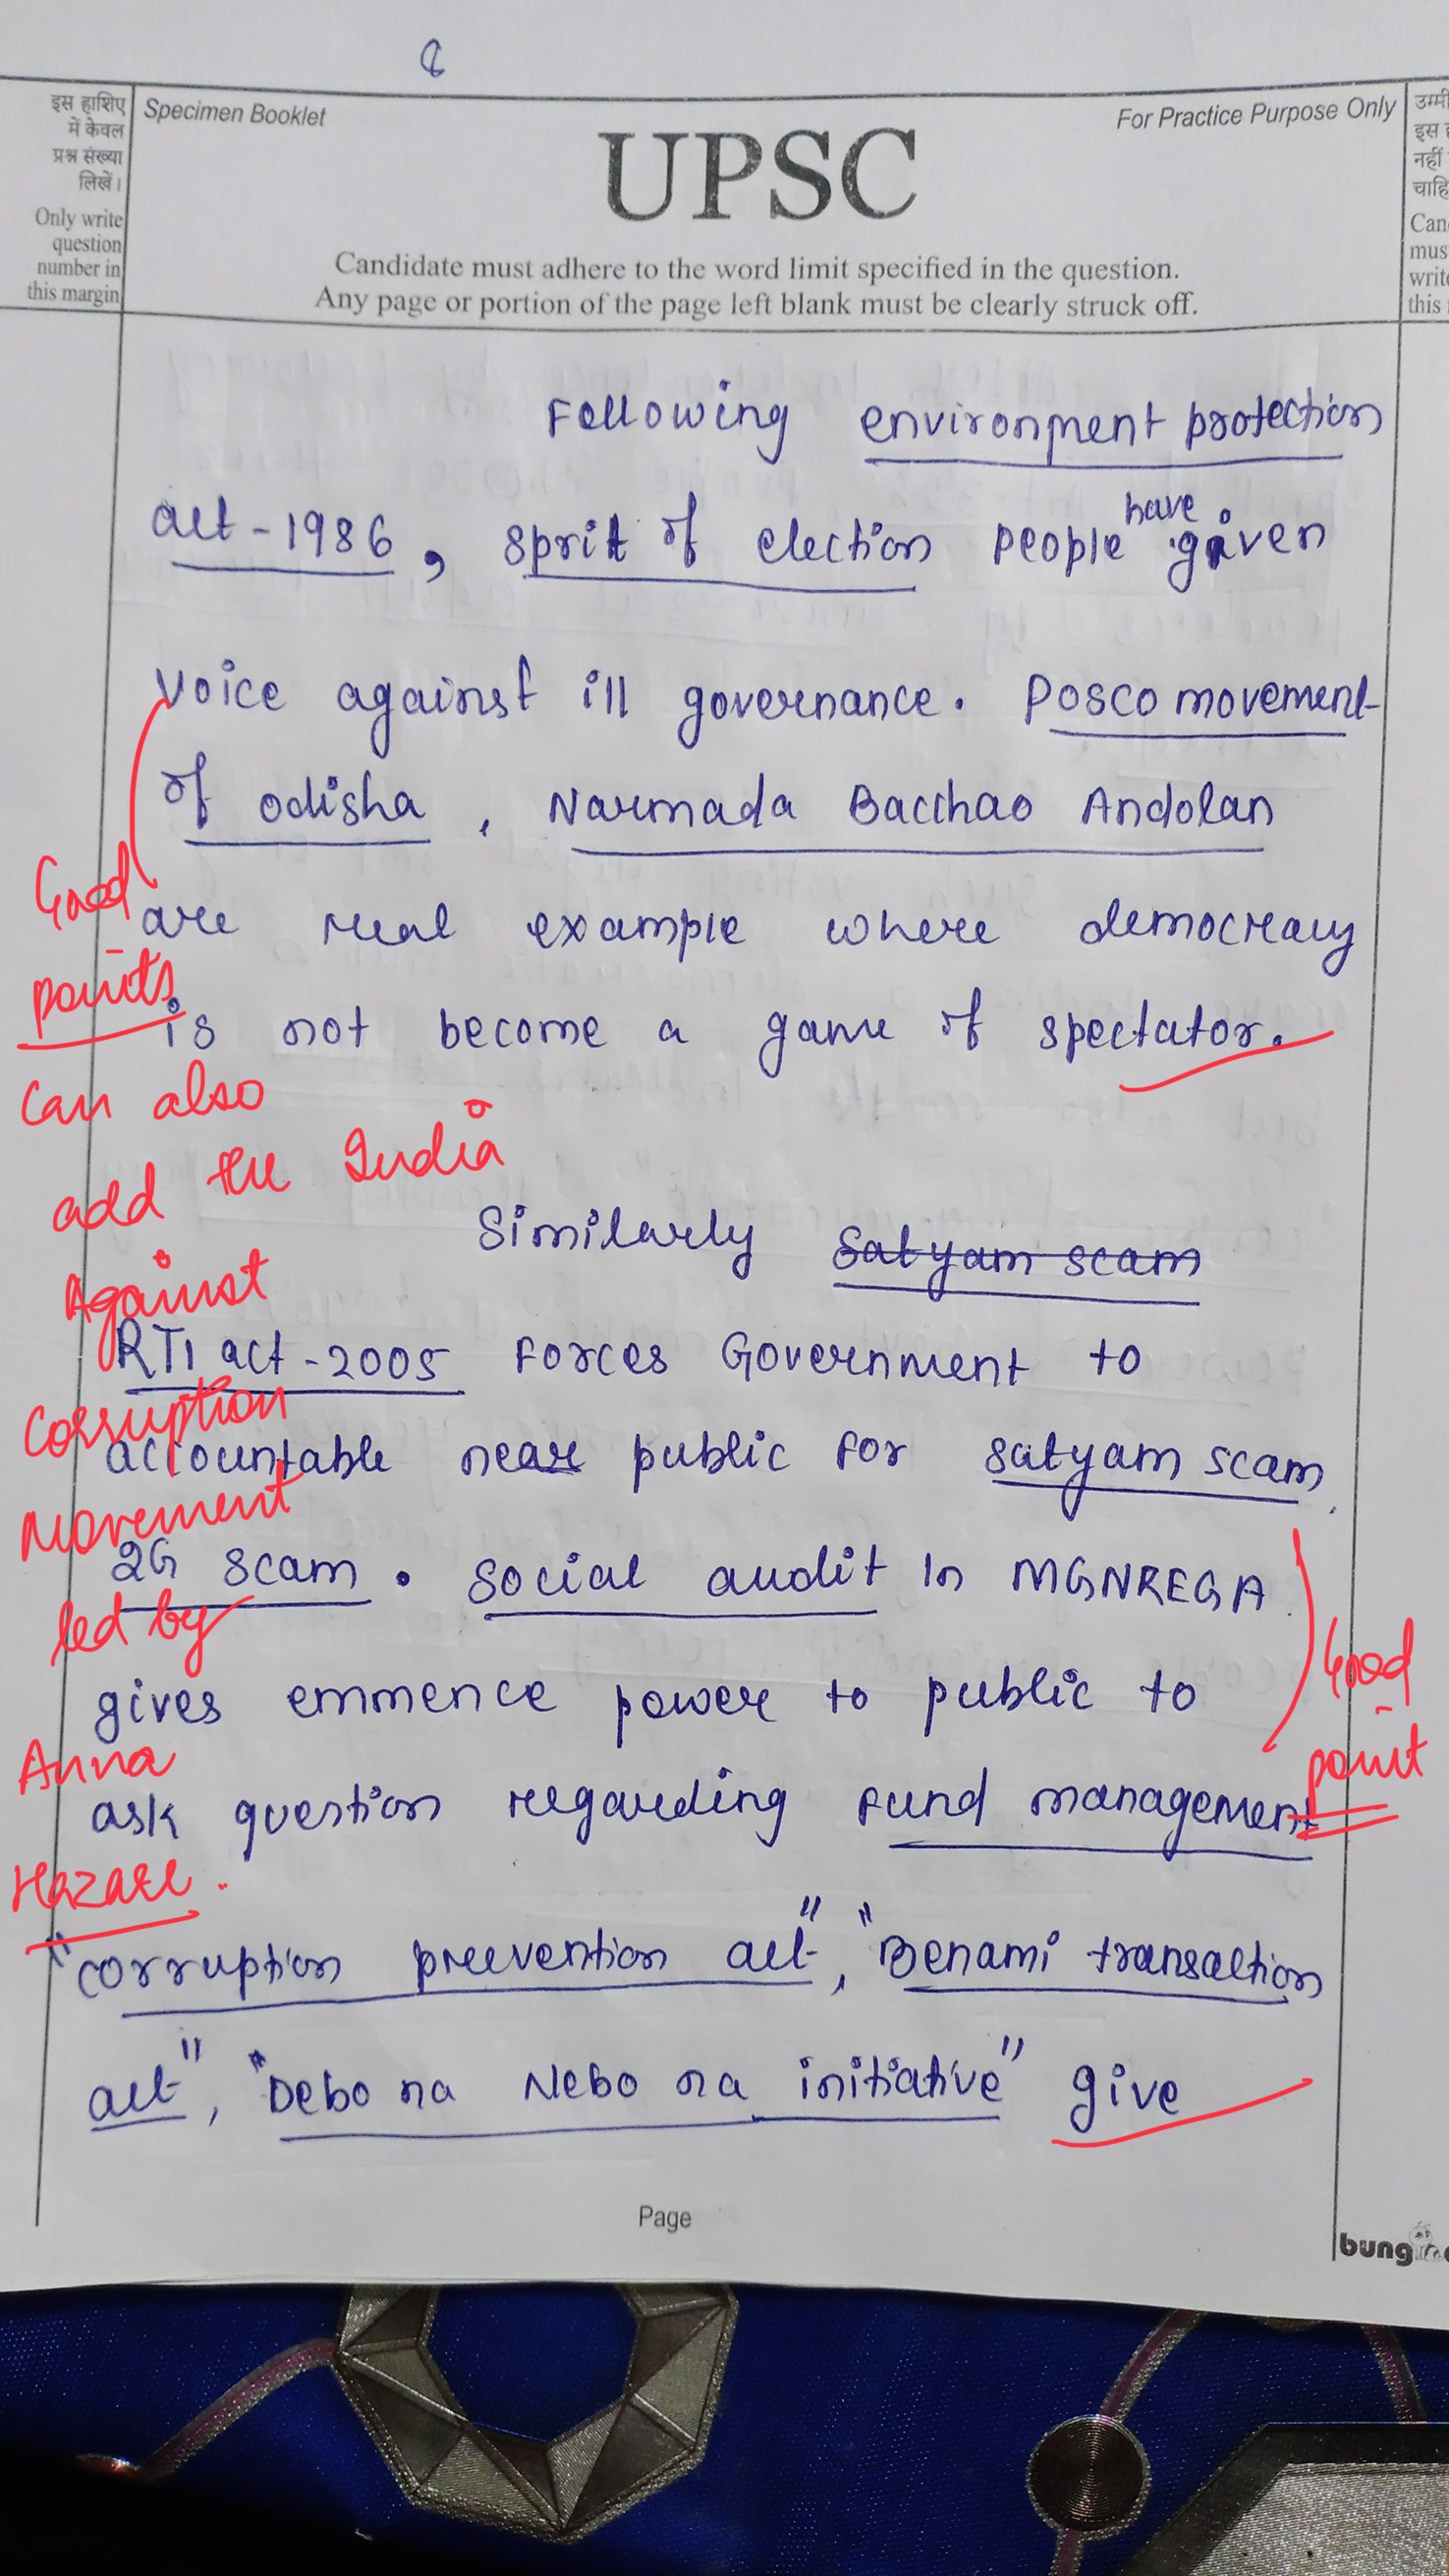 इस हाशिए
में केवल
प्रश्न संख्या
लिखें।
Only write
question
number in
this margin
Specimen Booklet
For Practice Purpose Only
UPSC
Candidate must adhere to the word limit specified in the question.
Any page or portion of the page left blank must be clearly struck off.
उम्मी
इस
नहीं
चाहि
Can
mus
write
this
Following environment protection
act-1986, sprit of election people have given
voice against ill governance. Posco movement
of odisha, Narmada Bacchao Andolan
are real example where democracy
is not become a game of spectator.
Good
points
Can also
add the India
Against
Corruption
Movement
led by
Anna
Hazare.
Similarly Satyam scam
RTI act-2005 Forces Government to
accountable near public for satyam scam,
2G scam. Social audit in MGNREGA
gives emmence power to public to
ask question regarding fund management
Good
point
"corruption preevention act", "Benami transaction
act", "Debo na Nebo na initiative" give
Page
bung